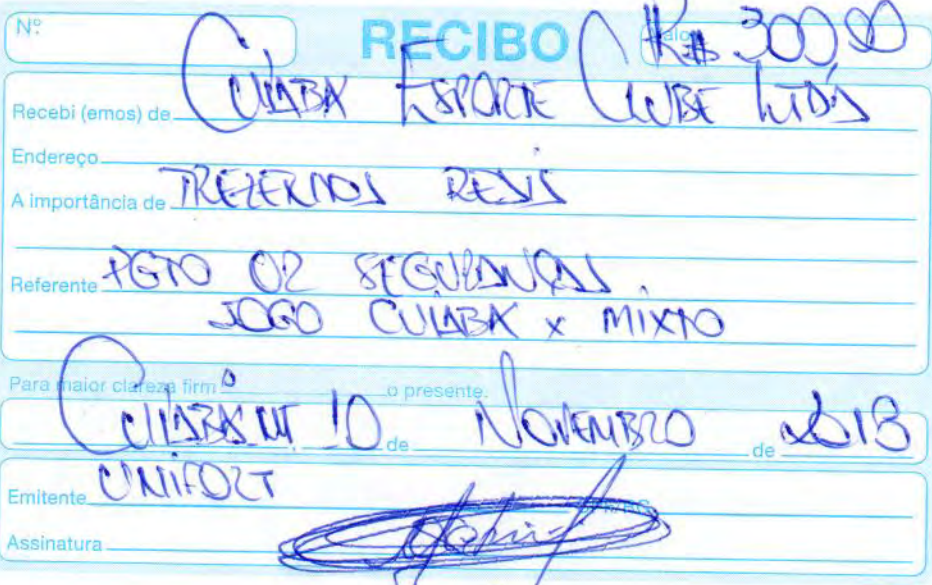 Nº RECIBO Valor R$ 300,00
Recebi (emos) de CUIABÁ ESPORTE CLUBE LTDA
Endereço
A importância de TREZENTOS REAIS
Referente PGTO 02 SEGURANÇAS
JOGO CUIABÁ x MIXTO
Para maior clareza firm o o presente.
CUIABÁ MT 10 de NOVEMBRO de 2018
Emitente UNIFORT
Assinatura